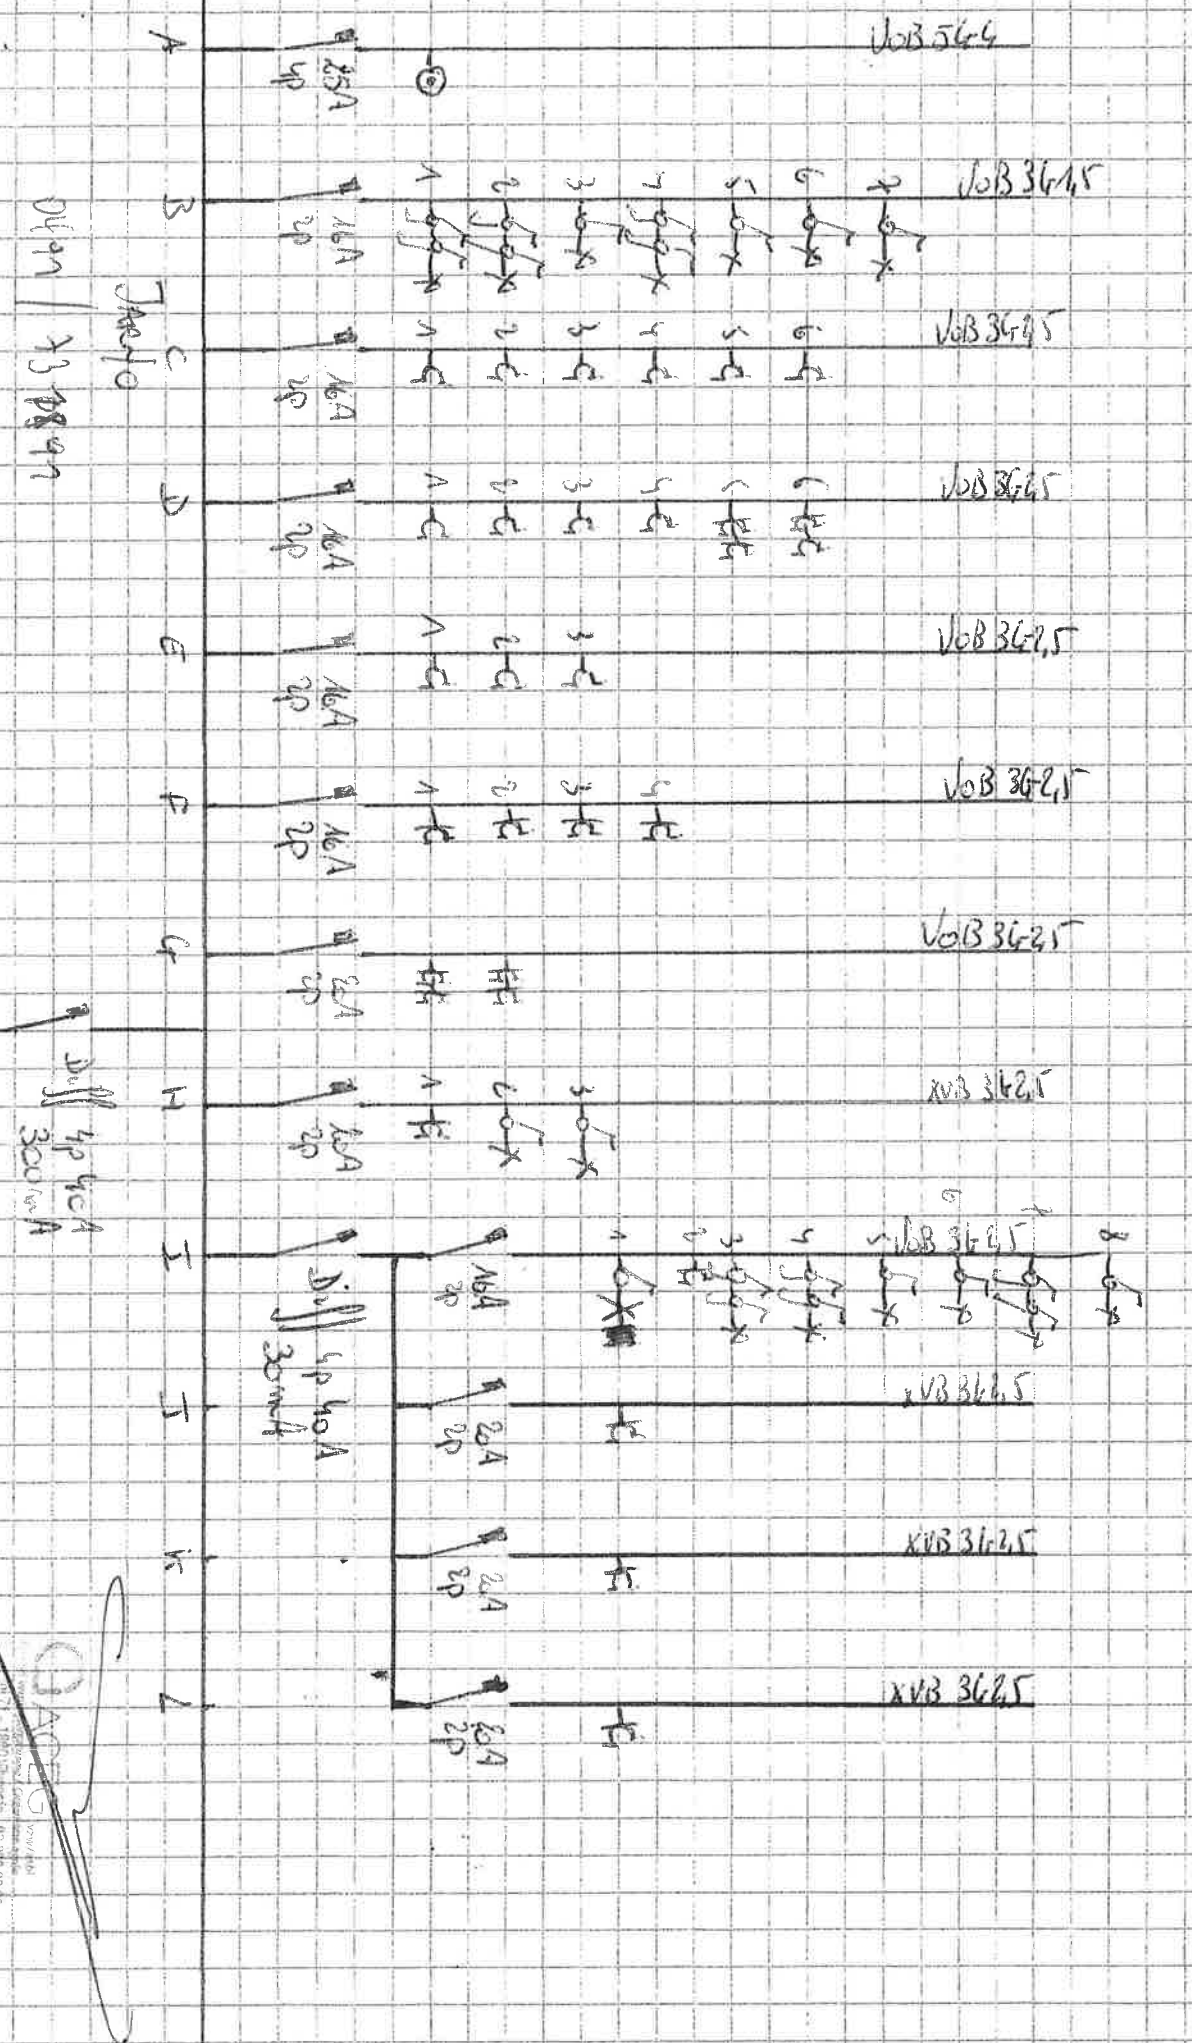 A
25A
4p
VOB 5G4
B
16A
2p
1 2 3 4 5 6 7
VOB 3G1,5
C
16A
2p
1 2 3 4 5 6
VOB 3G2,5
D
16A
2p
1 2 3 4 5 6
VOB 3G2,5
E
16A
2p
1 2 3
VOB 3G2,5
F
16A
2p
1 2 3 4
VOB 3G2,5
G
20A
2p
VOB 3G2,5
Diff 4p 40A
300mA
H
20A
2p
1 2 3
XVB 3G2,5
I
Diff 4p 40A
30mA
16A
2p
1 2 3 4 5 6 7 8
VOB 3G2,5
J
20A
2p
XVB 3G2,5
K
20A
2p
XVB 3G2,5
L
20A
2p
XVB 3G2,5
ACEG